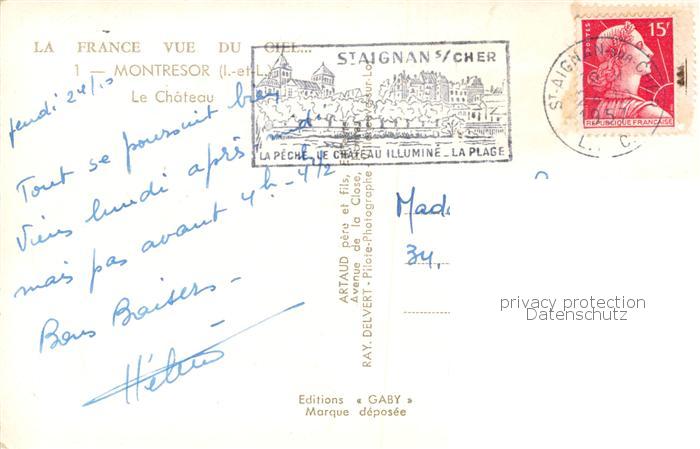 LA FRANCE VUE DU CIEL...
1 — MONTRESOR (I.-et-L.)
Le Château
jeudi 24/10
Tout se poursuit bien
Viens lundi après midi
mais pas avant 4h - 4h½
Bons Baisers -
Hélène
ST AIGNAN S/CHER
LA PÊCHE_LE CHATEAU ILLUMINÉ_LA PLAGE
POSTES
15F
REPUBLIQUE FRANÇAISE
ST-AIGNAN-SUR-CHER
ARTAUD père et fils,
Avenue de la Close,
RAY. DELVERT - Pilote-Photographe
Mad
34,
privacy protection
Datenschutz
Editions « GABY »
Marque déposée